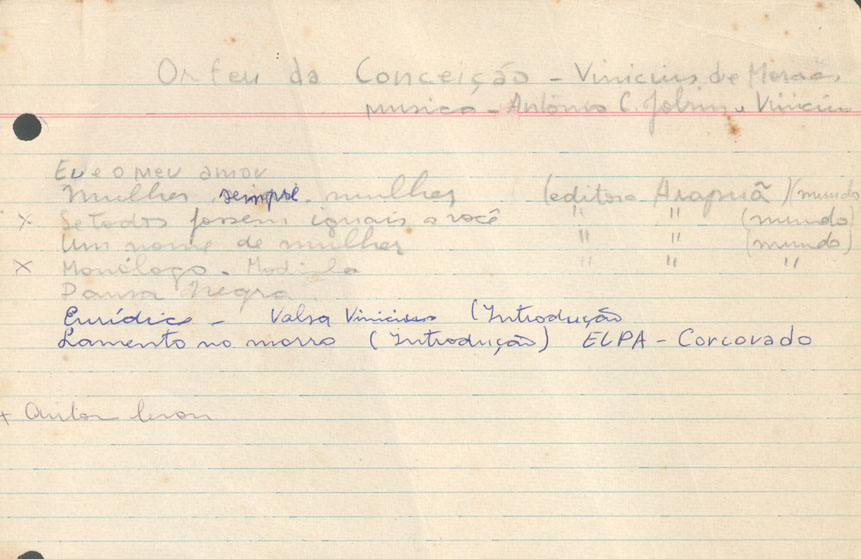 Orfeu da Conceição - Vinicius de Moraes
musica - Antônio C. Jobim e Vinicius
Eu e o meu amor
Mulher sempre mulher (editora Arapuã) (mundo
x Se todos fossem iguais a você " " (mundo)
Um nome de mulher " " (mundo)
x Monólogo - Modinha " " "
Dansa Negra
Eurídice - Valsa Vinicius (Introdução
Lamento no morro (Introdução) ECPA - Corcovado
+